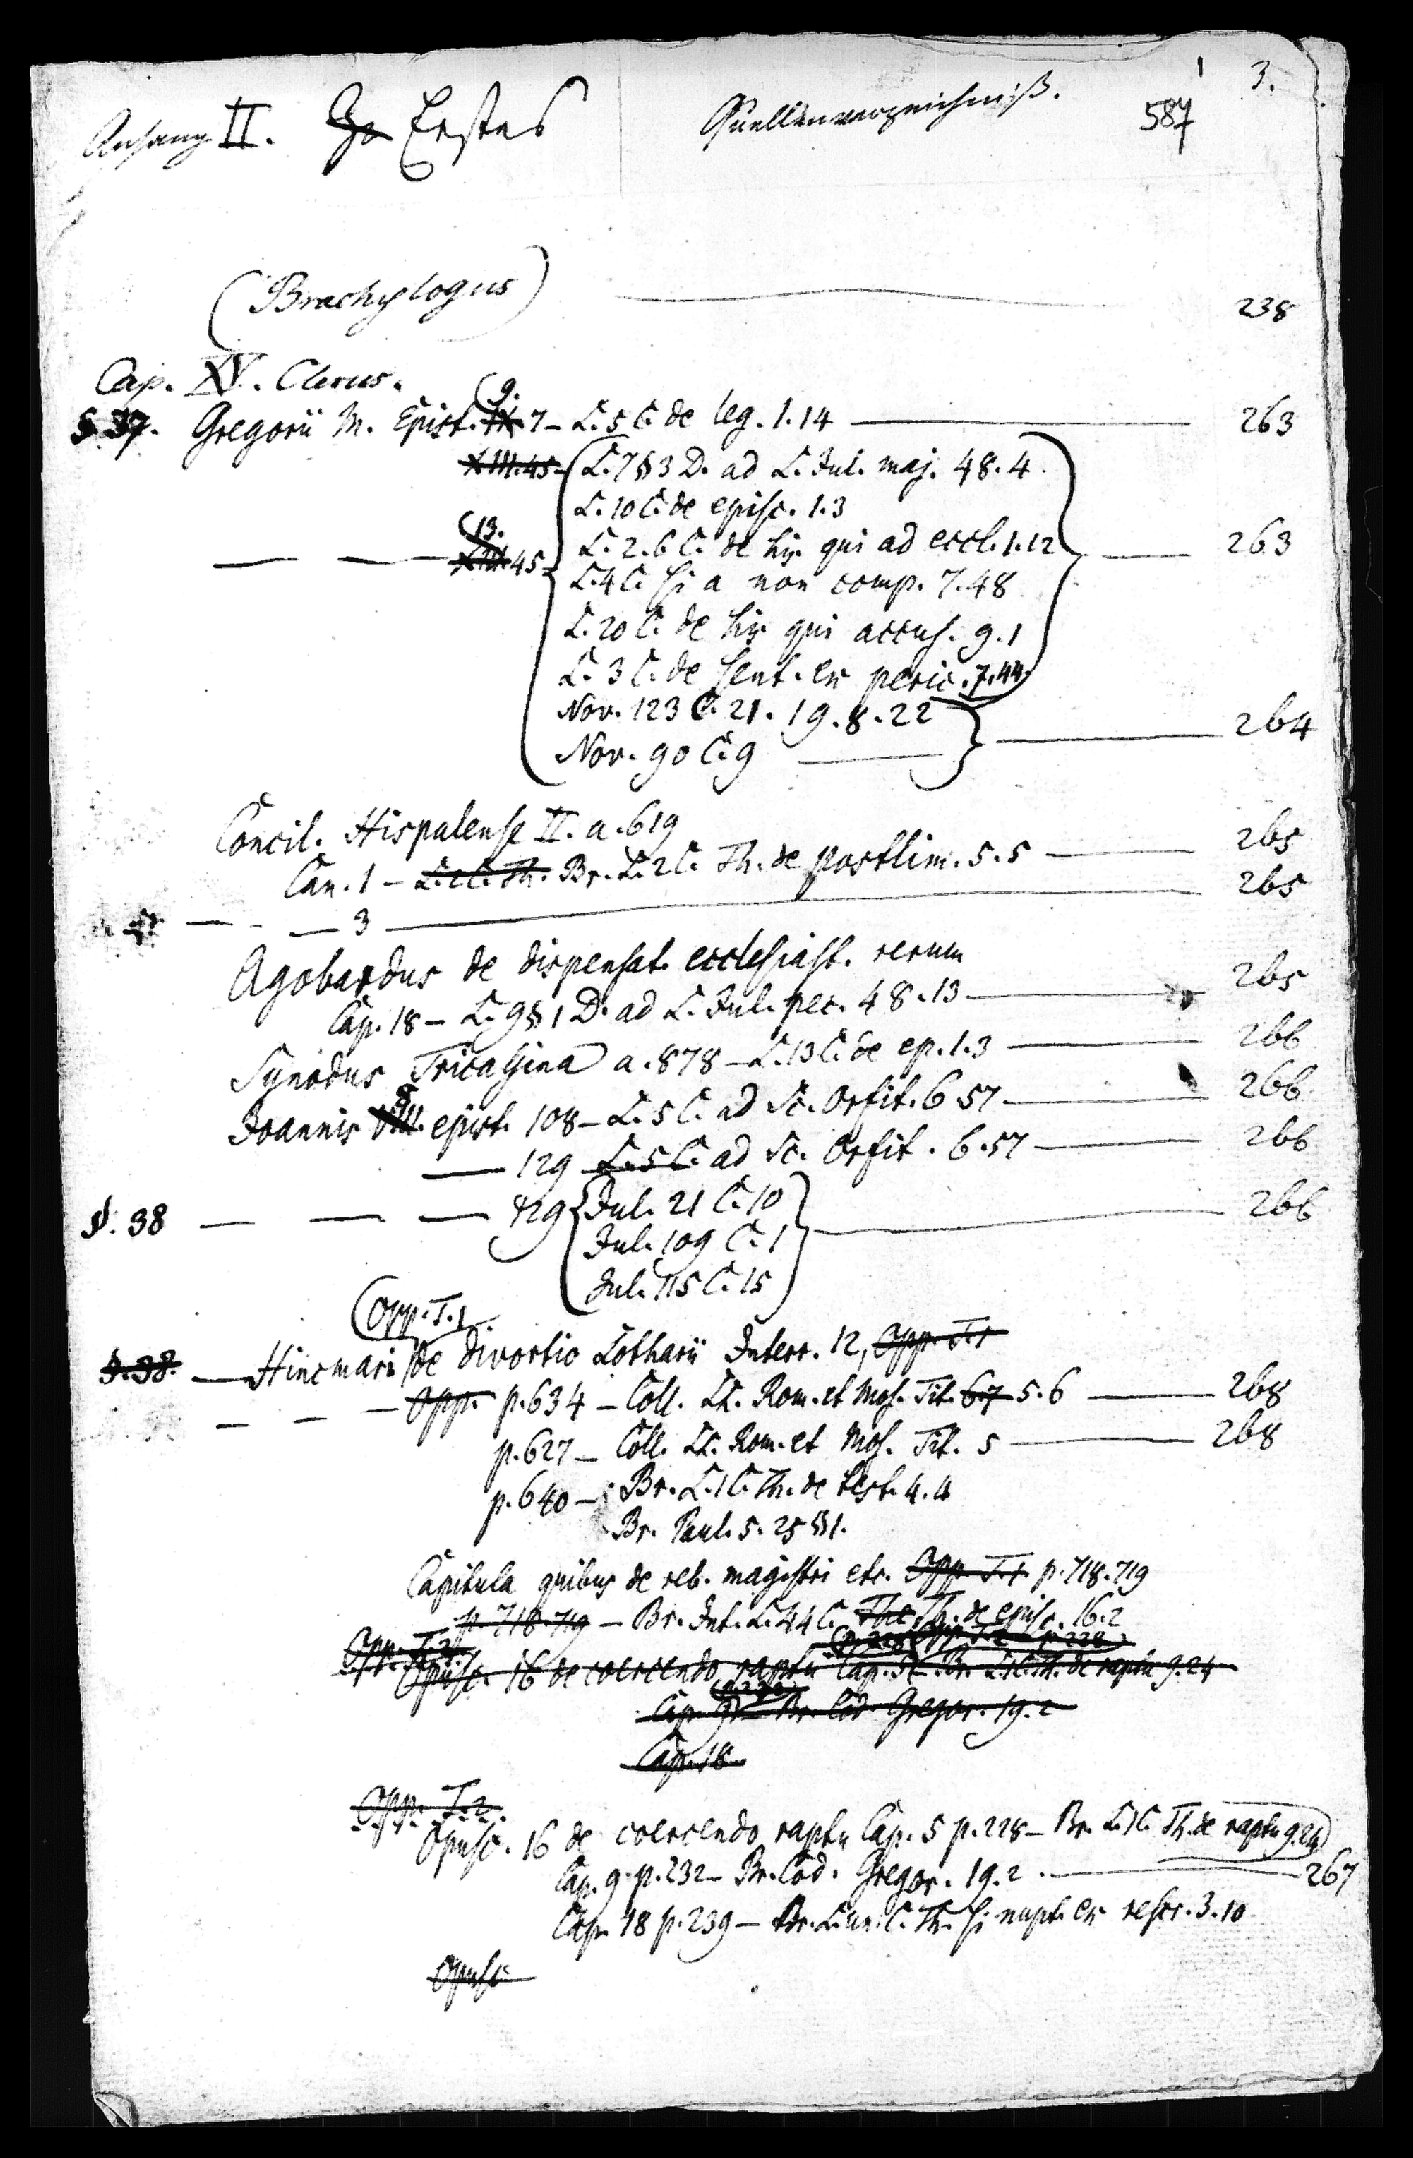 1 3.
Anhang II. Erstes Quellenverzeichniß. 587
(Brachylogus) 238
Cap. XV. Clerus.
9.
§. 37. Gregorii M. Epist. IX. 7 – L. 5 C. de leg. 1.14 263
XIII. 45 – L. 7 § 3 D. ad L. Jul. maj. 48.4.
L. 10 C. de episc. 1.3
13.
XIII. 45 – L. 2. 6 C. de his qui ad eccl. 1.12 263
L. 4 C. si a non comp. 7.48
L. 20 C. de his qui accus. 9.1
L. 3 C. de sent. ex peric. 7.44.
Nov. 123 C. 21. 19. 8. 22
Nov. 90 C. 9 264
Concil. Hispalense II. a. 619
Can. 1 – L. 2 C. Th. Br. L. 2 C. Th. de postlim. 5.5 265
— — 3 265
Agobardus de dispensat. ecclesiast. rerum
Cap. 18 – L. 9 § 1 D. ad L. Jul. pec. 48.13 265
Synodus Tricassina a. 878 – L. 13 C. de ep. 1.3 266
8
Joannis VIII. epist. 108 – L. 5 C. ad Sc. Orfit. 6.57 266
— 129 L. 5 C. ad Sc. Orfit. 6.57 266
§. 38 — — — 129 Jul. 21 C. 10 266
Jul. 109 C. 1
Jul. 115 C. 15
Opp. T. 1
§. 38. — Hincmari de divortio Lotharii Interr. 12, Opp. T. 1
— — — Opp. p. 634 – Coll. LL. Rom. et Mos. Tit. 6.7 5.6 268
p. 627 – Coll. LL. Rom. et Mos. Tit. 5 268
p. 640 – Br. L. 1 C. Th. de test. 4.4
Br. Paul. 5.25 § 1.
Capitula quibus de reb. magistri etc. Opp. T. 1 p. 718. 719
p. 718. 719 – Br. Int. L. 44 C. The Th. de episc. 16.2
p. 228 Opp. T. 2 p. 228
Opp. T. 2
Opusc. 16 de coercendo raptu Cap. 5 – Br. L. 1 C. Th. de raptu 9.24
Cap. 9 – Br. Cod. Gregor. 19.2
Cap. 18
Opp. T. 2.
Opusc. 16 de coercendo raptu Cap. 5 p. 228 – Br. L. 1 C. Th. de raptu 9.24
Cap. 9. p. 232 – Br. Cod. Gregor. 19.2. 267
Cap. 18 p. 239 – Br. L. un. C. Th. si nupt. ex rescr. 3.10
Opusc